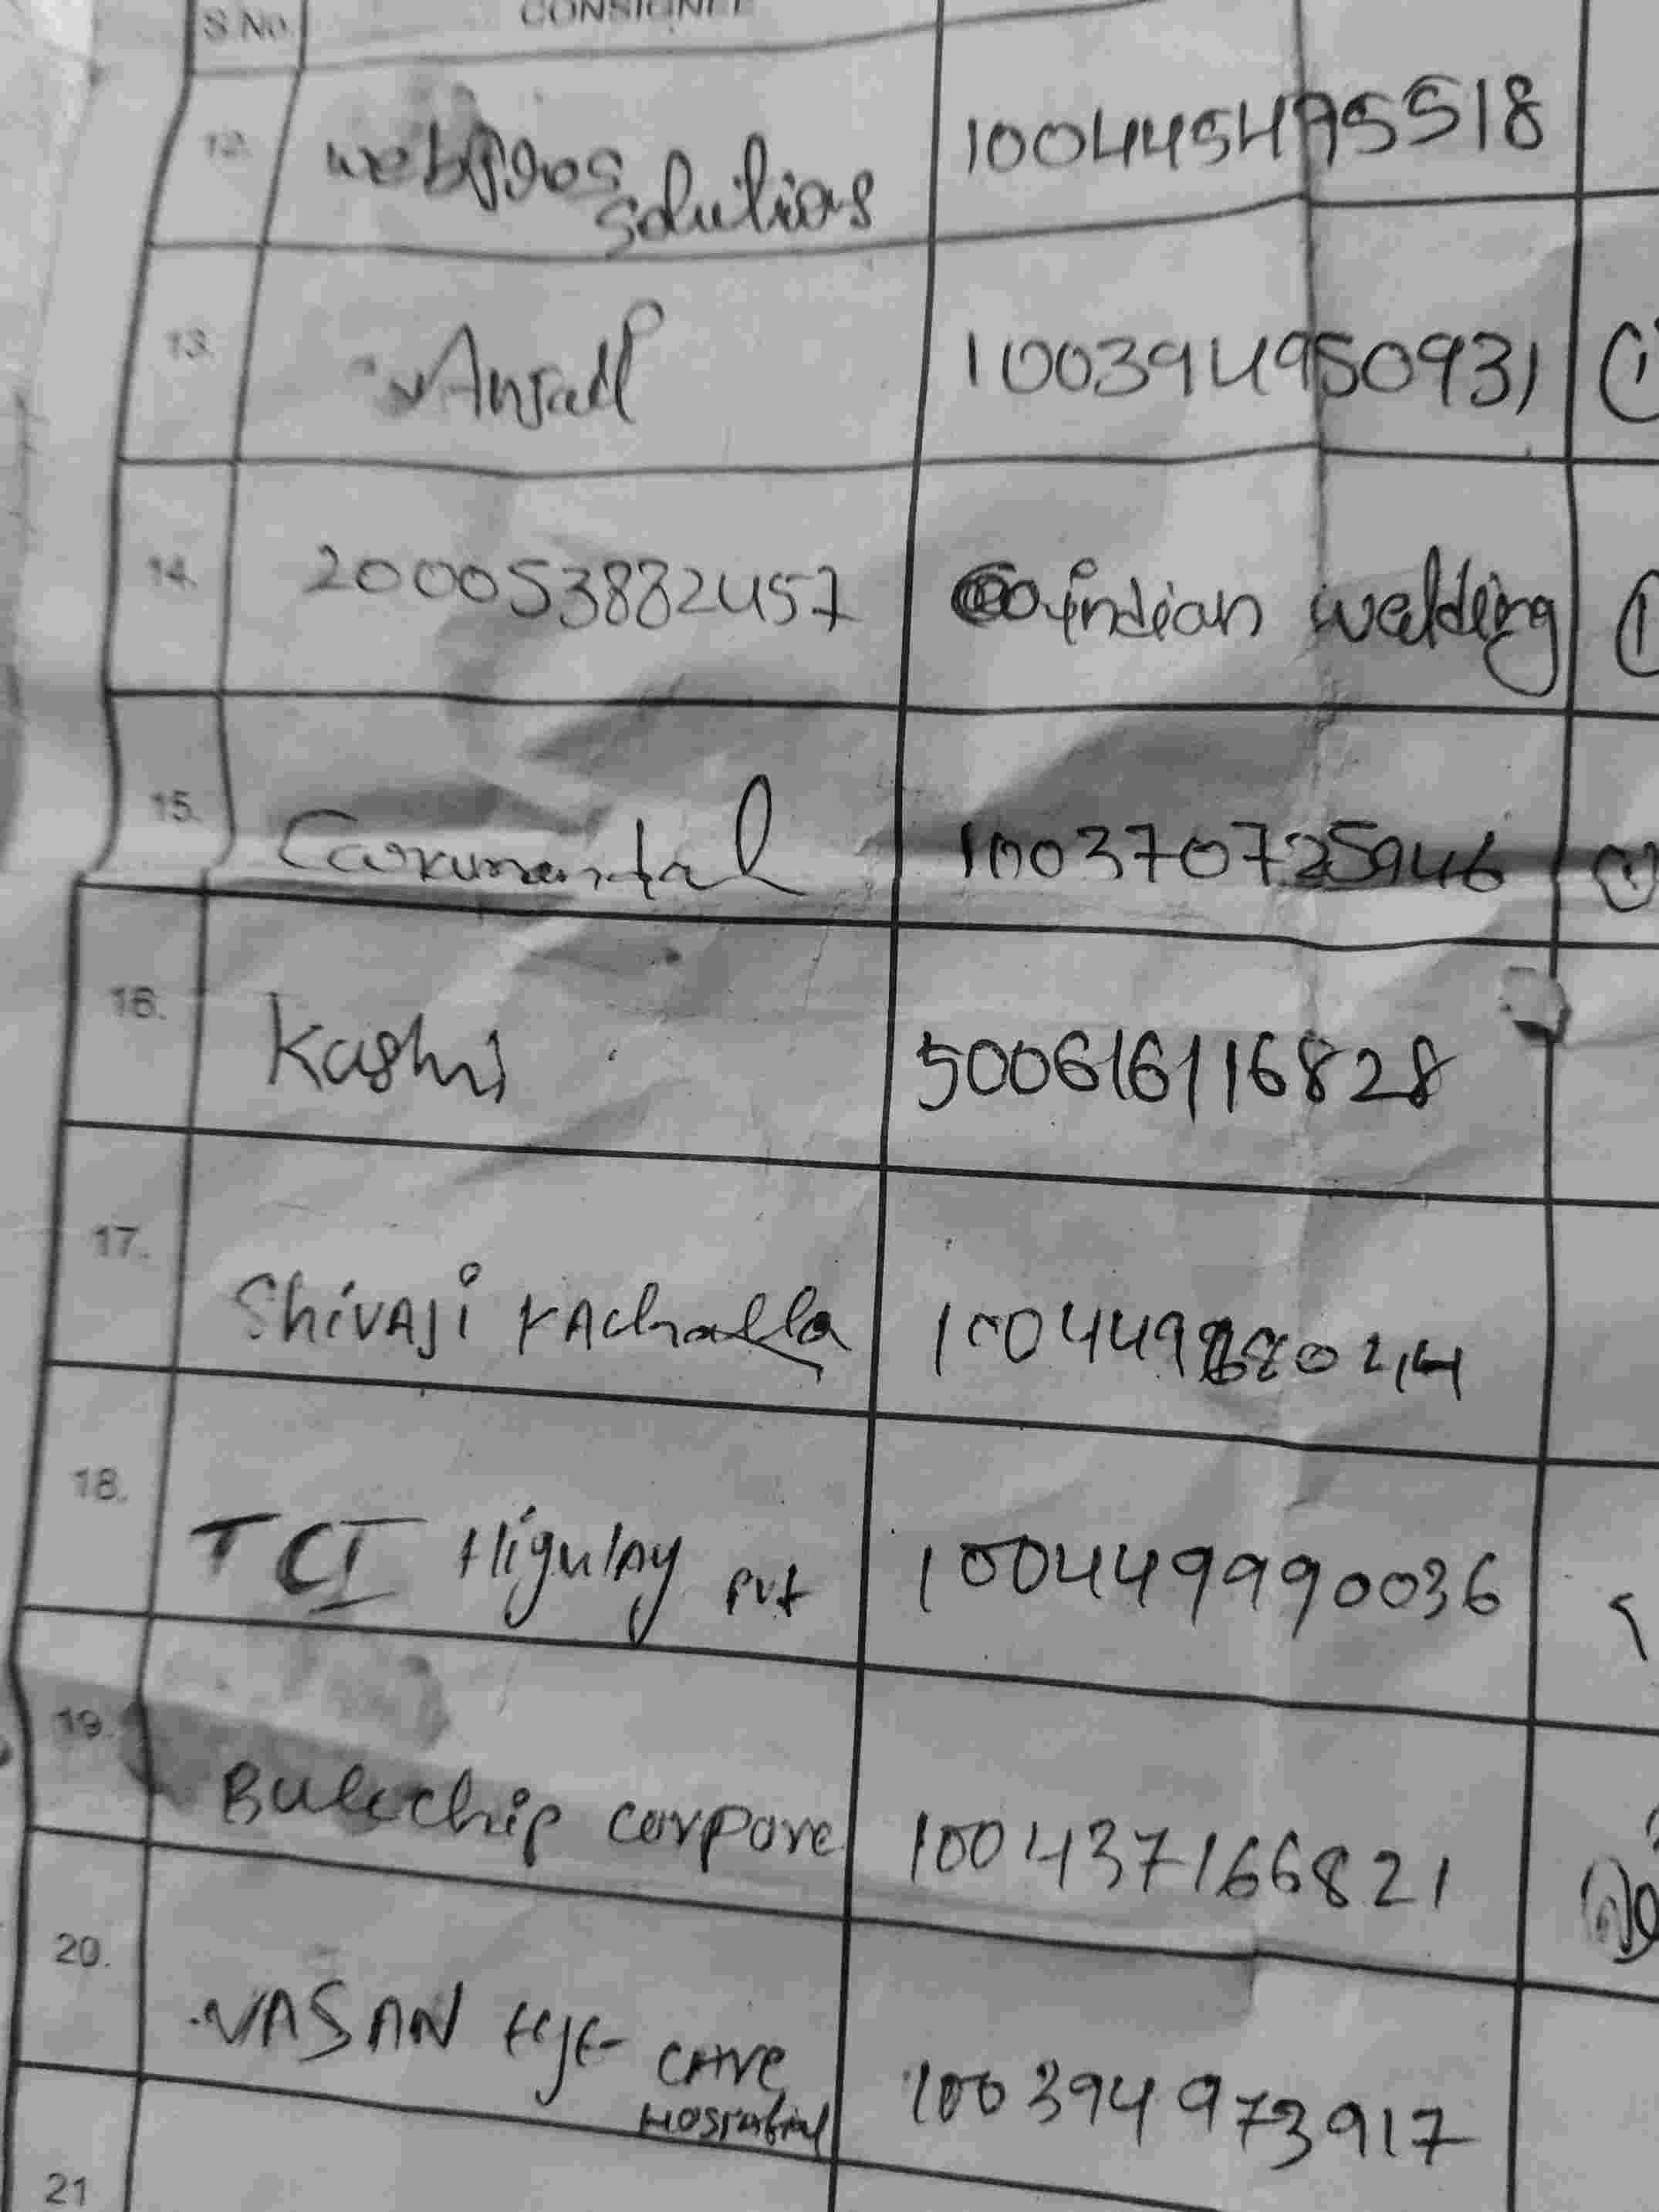 S.No. CONSIGNEE
12. solutions 100445495518
13. 100394950931
14. 200053882457 indian welding
15. 100370725946
16. Kashi 500616116828
17. Shivaji
18. TCI Higulay pvt 100449990036
19. Bulechip corpore 100437166821
20. VASAN Eye care
Hospital 100394973917
21